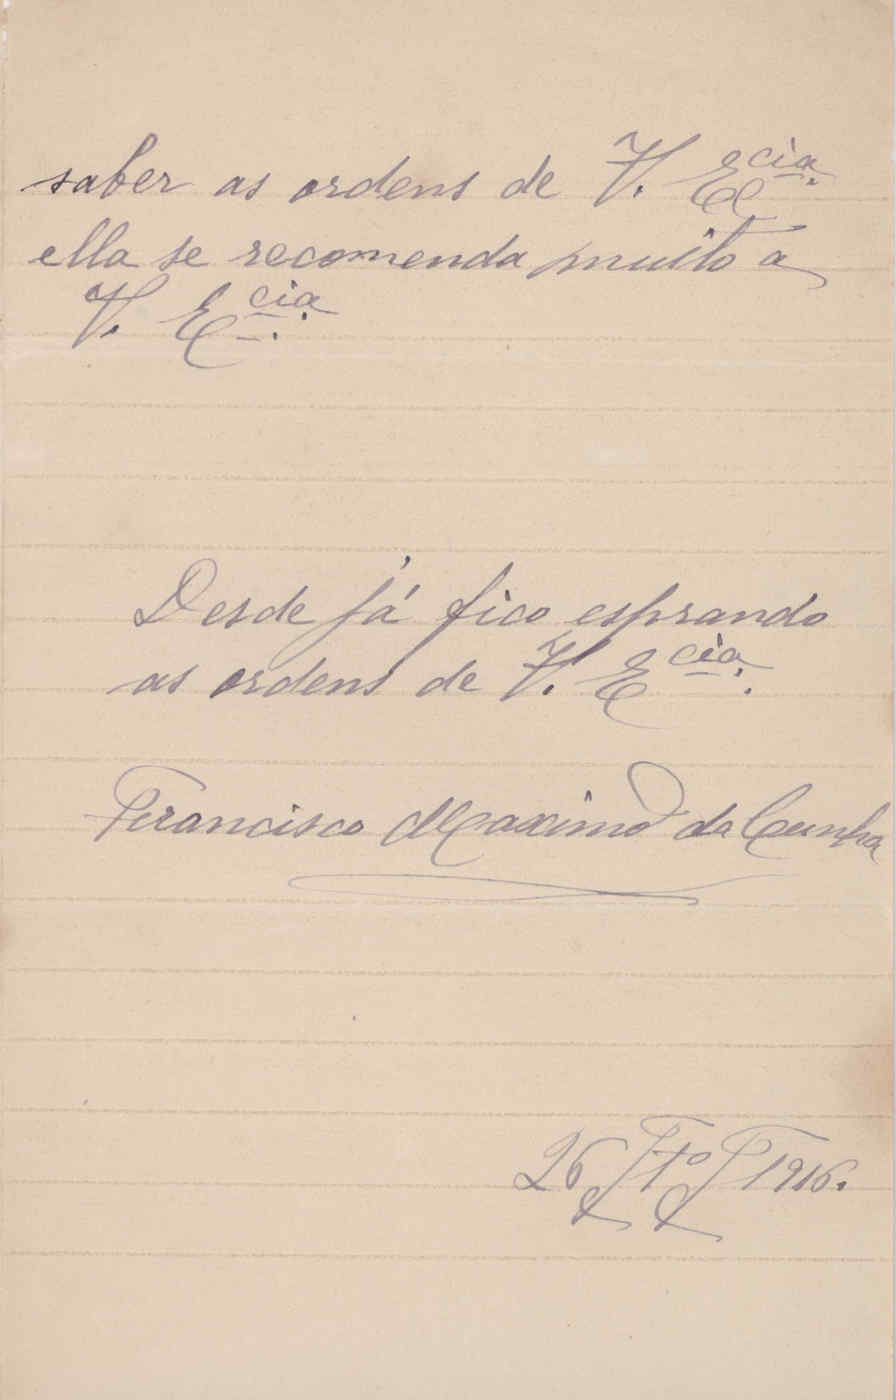 saber as ordens de V. Ecia.
ella se recomenda muito a
V. Ecia.
Desde já fico esprando
as ordens de V. Ecia.
Francisco Maximo da Cunha
26 1916.